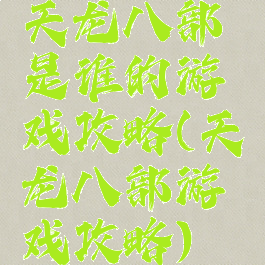 天龙八部
是谁的游
戏攻略(天
龙八部游
戏攻略)